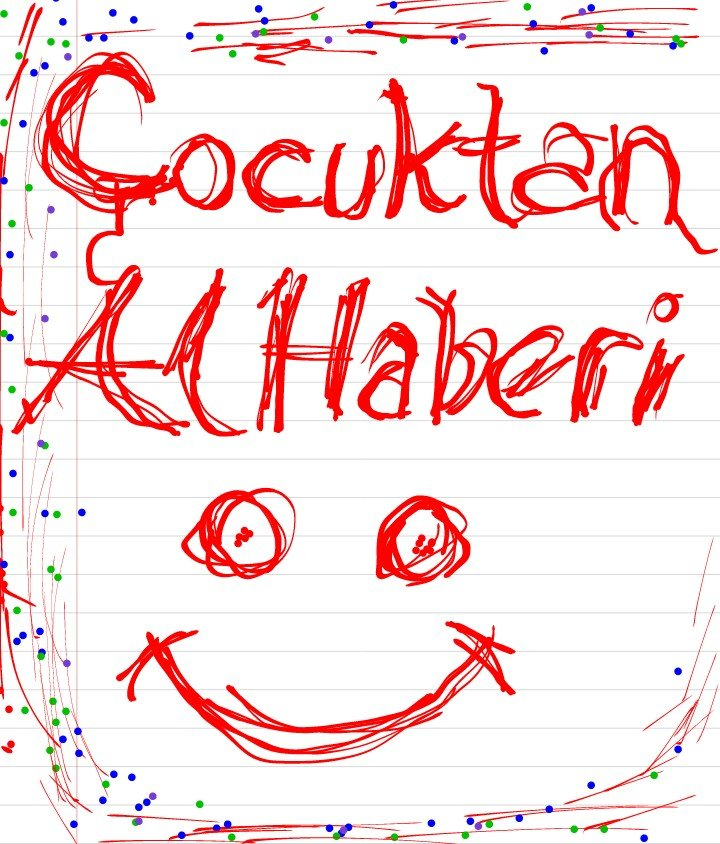 Çocuktan
Al Haberi